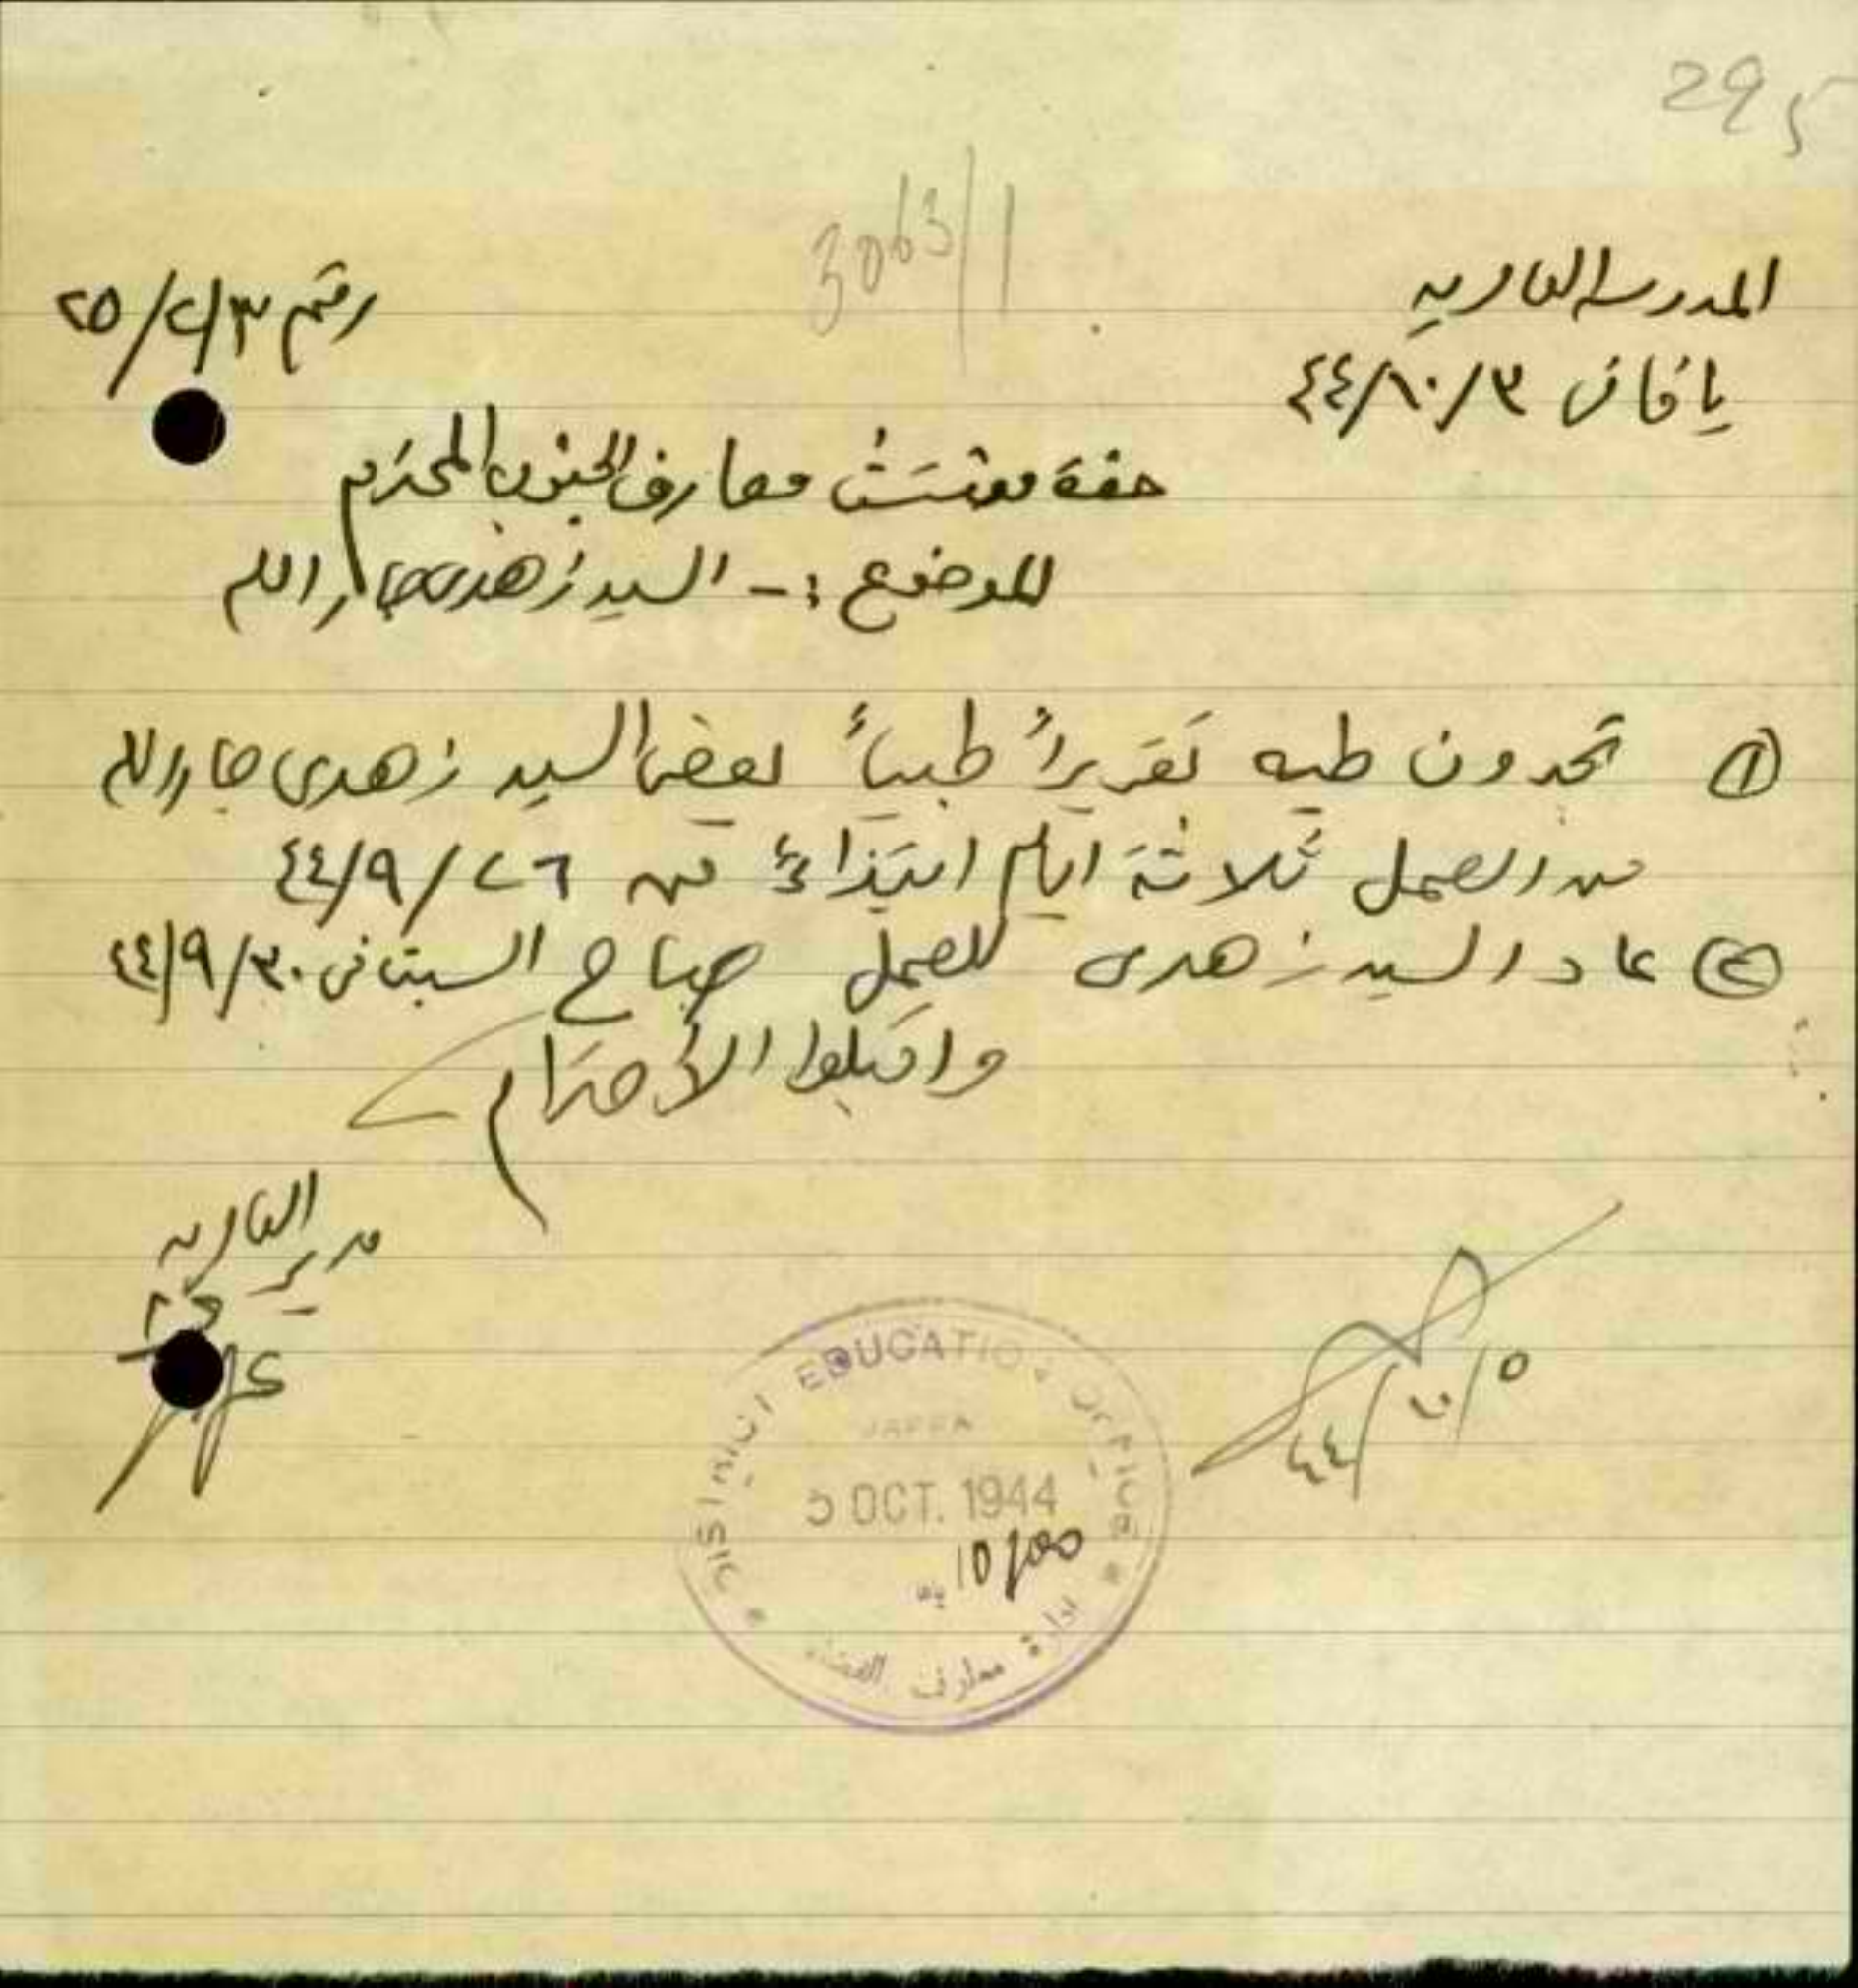 295
3063/1
المدرسة العامرية
رقم ٢٥/٢/٣
يافا في ٤٤/١٠/٣
حضرة مفتش معارف الجنوب المحترم
الموضوع :- السيد زهدي جار الله
① تجدون طيه تقريراً طبياً بعض السيد زهدى جار الله
من العمل ثلاثة ايام ابتداءً من ٤٤/٩/٢٦
② عاد السيد زهدى للعمل صباح السبت فى ٤٤/٩/٣٠
واقبلوا الأحترام
مدير العامرية
DISTRICT EDUCATION OFFICE
JAFFA
5 OCT. 1944
ادارة معارف القضاء